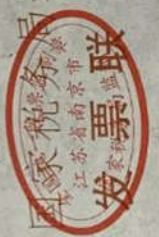 国家税务局
江苏省南京市
发票联